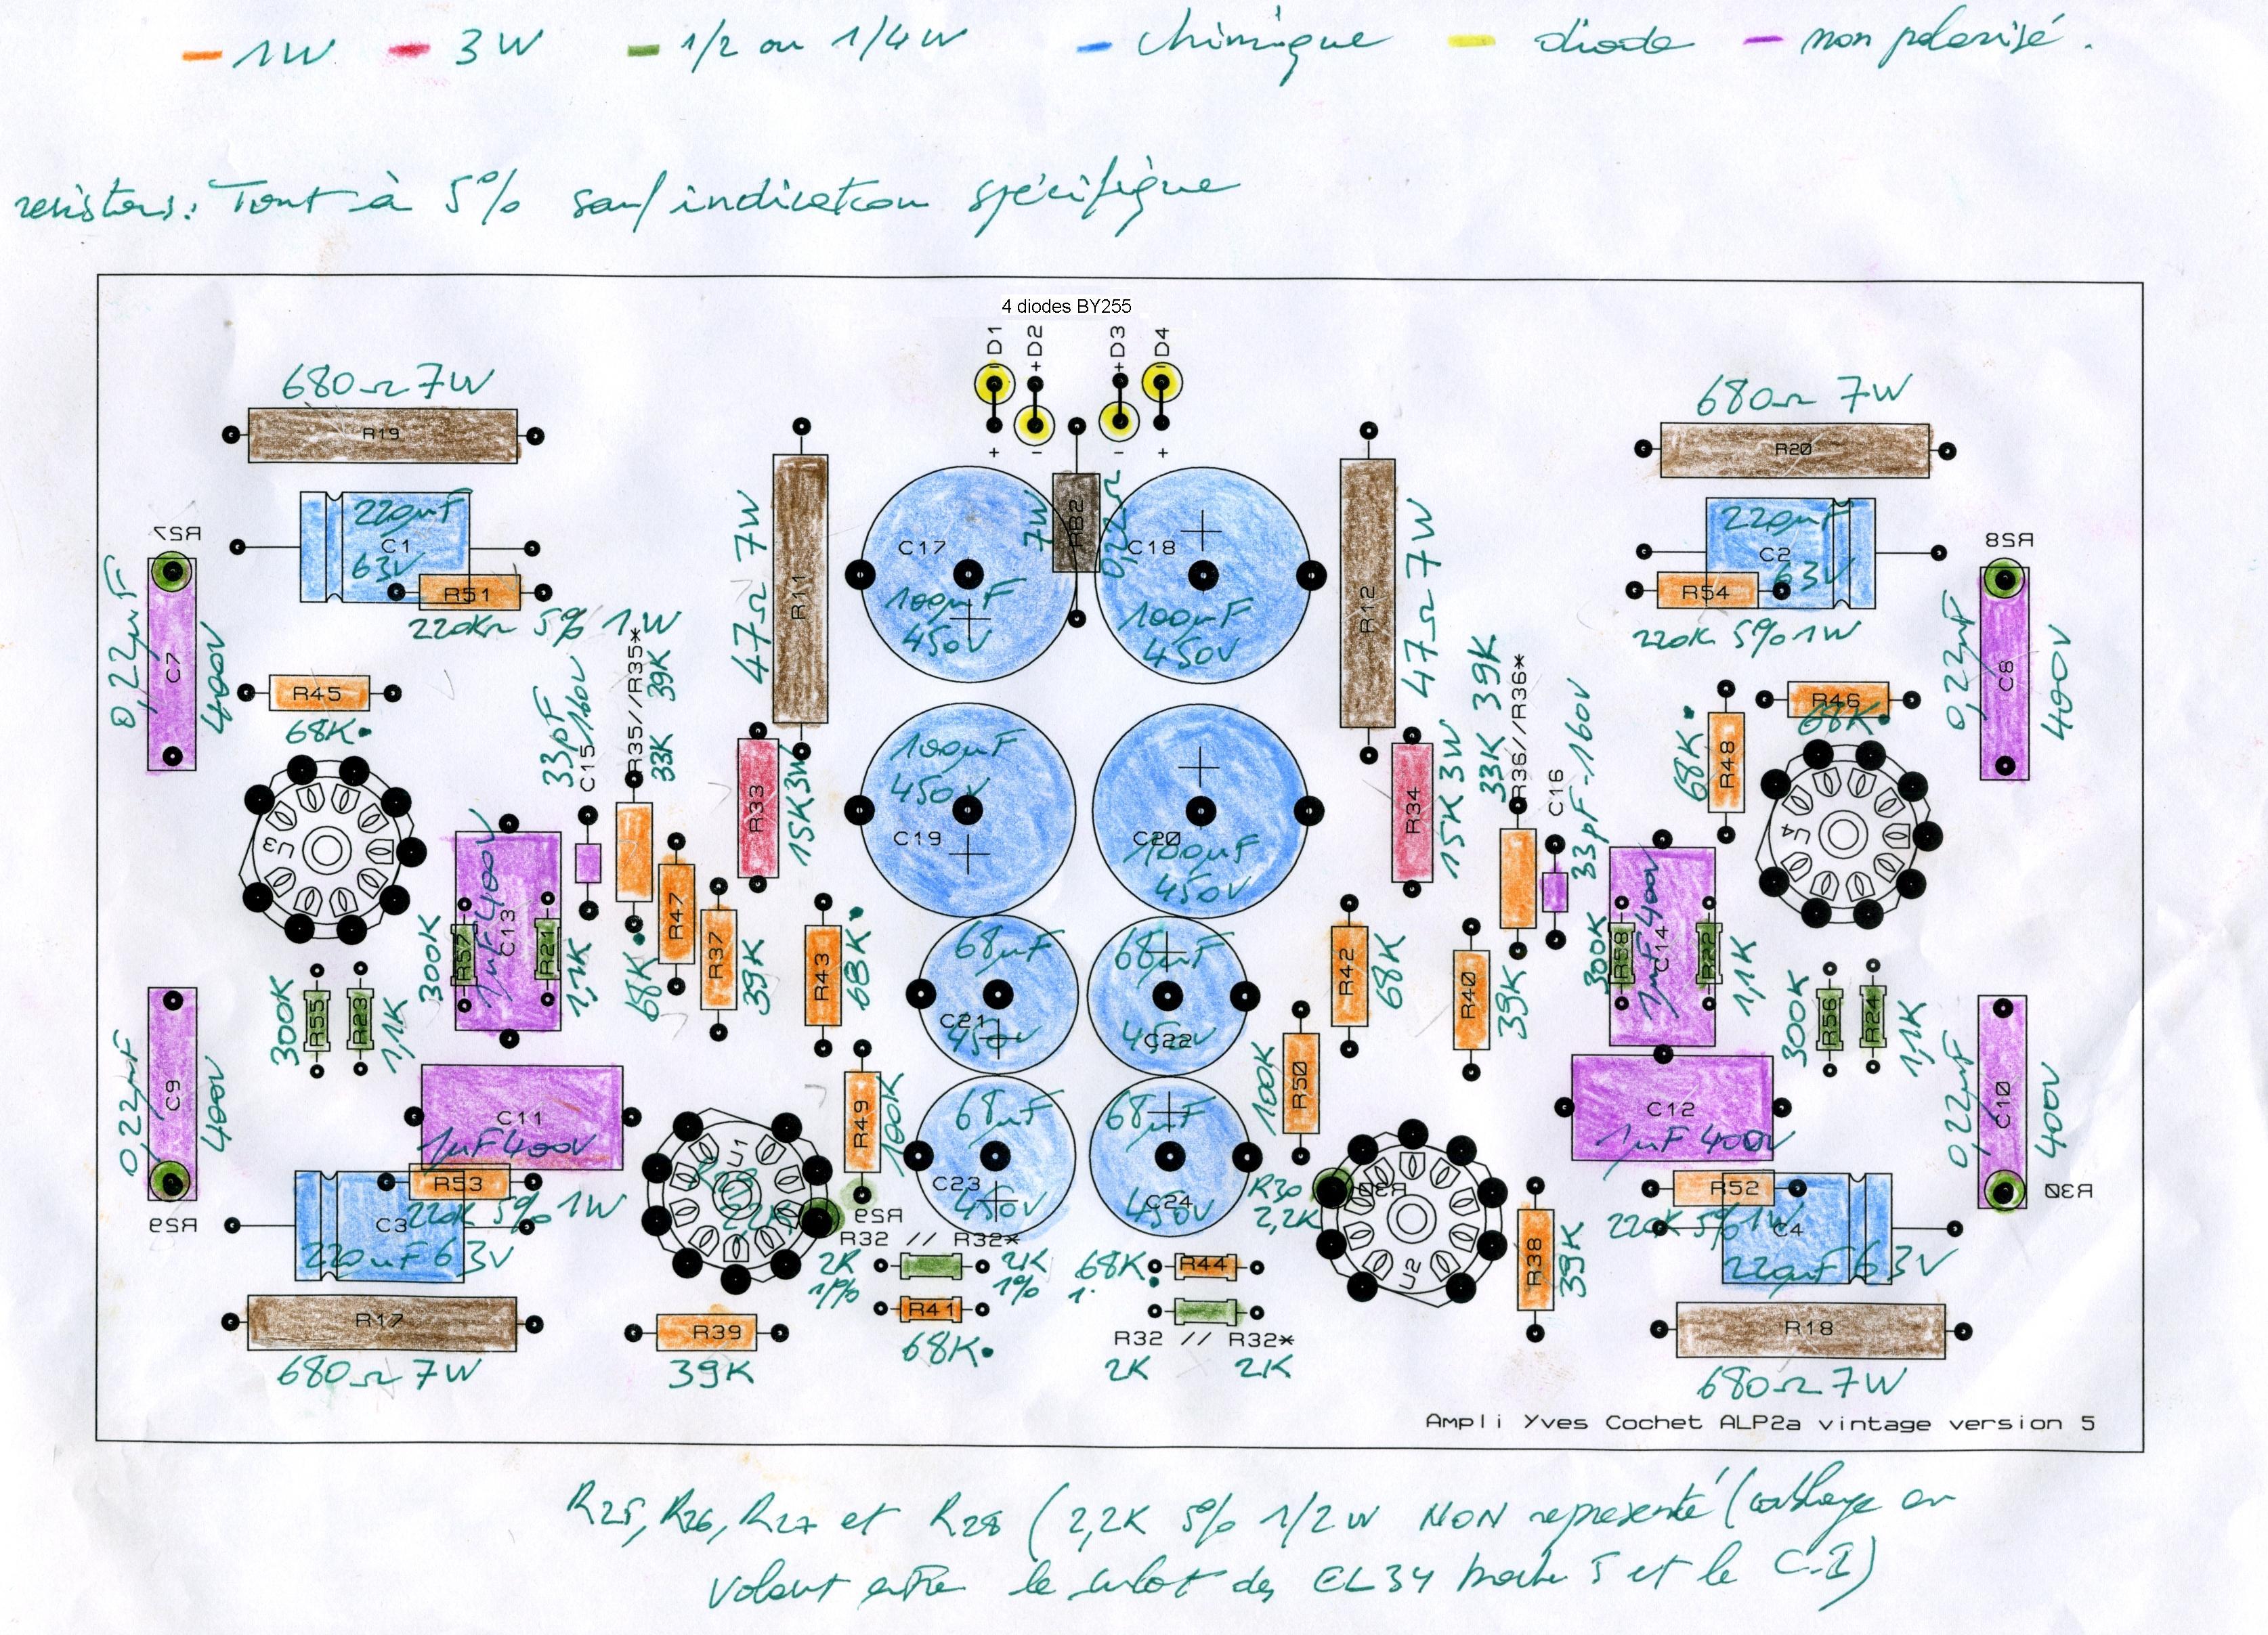 1W 3W 1/2 ou 1/4 W chimique diode non polarisé.
resistors: Tout à 5% sauf indication spécifique
4 diodes BY255
D1 +D2 +D3 D4
+ - - +
680Ω 7W
R19
680Ω 7W
R20
R27
0,22µF
C7
400V
220µF
C1
63V
R51
220KΩ 5% 1W
R45
68K.
U3
47Ω 7W
R11
C17
100µF
450V
7W
RB2
0,22Ω
C18
100µF
450V
R12
47Ω 7W
220µF
C2
63V
R54
220K 5% 1W
R28
0,22µF
C8
400V
33pF
160V
C15
R35//R35*
33K 39K
R33
15K3W
100µF
450V
C19
C20
100µF
450V
R34
15K3W
33K 39K
R36//R36*
C16
33pF-160V
68K.
R48
R46
68K.
U4
300K
R57
1µF400V
C13
R21
1,1K
68K.
R47
R37
39K
R43
68K.
68µF
C21
450V
68µF
C22
450V
R42
68K
R40
39K
300K
R58
1µF400V
C14
R22
1,1K
300K
R55
R23
1,1K
300K
R56
R24
1,1K
0,22µF
C9
400V
R29
C11
1µF400V
R53
220K 5% 1W
C3
220µF 63V
R17
680Ω 7W
U1
R29
R49
100K
R29
R32 // R32*
2K
1%
2K
1%
R41
68K.
R39
39K
68µF
C23
450V
68µF
C24
450V
100K
R50
R30
2,2K
R30
U2
68K.
R44
R32 // R32*
2K 2K
R38
39K
C12
1µF400V
R52
220K 5% 1W
C4
220µF 63V
R18
680Ω 7W
0,22µF
C10
400V
R30
Ampli Yves Cochet ALP2a vintage version 5
R25, R26, R27 et R28 (2,2K 5% 1/2W NON representé (cablage en
volant entre le culot des EL34 broche 5 et le C.I)